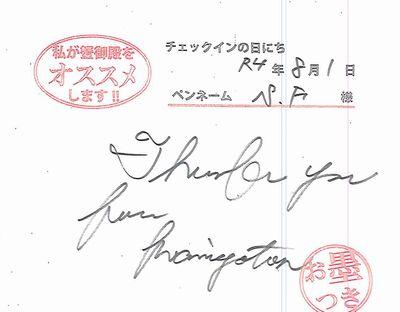 私が御殿を
オススメ
します!!
チェックインの日にち
R4年8月1日
ペンネーム N.F 様
Thank you
from
お墨つき